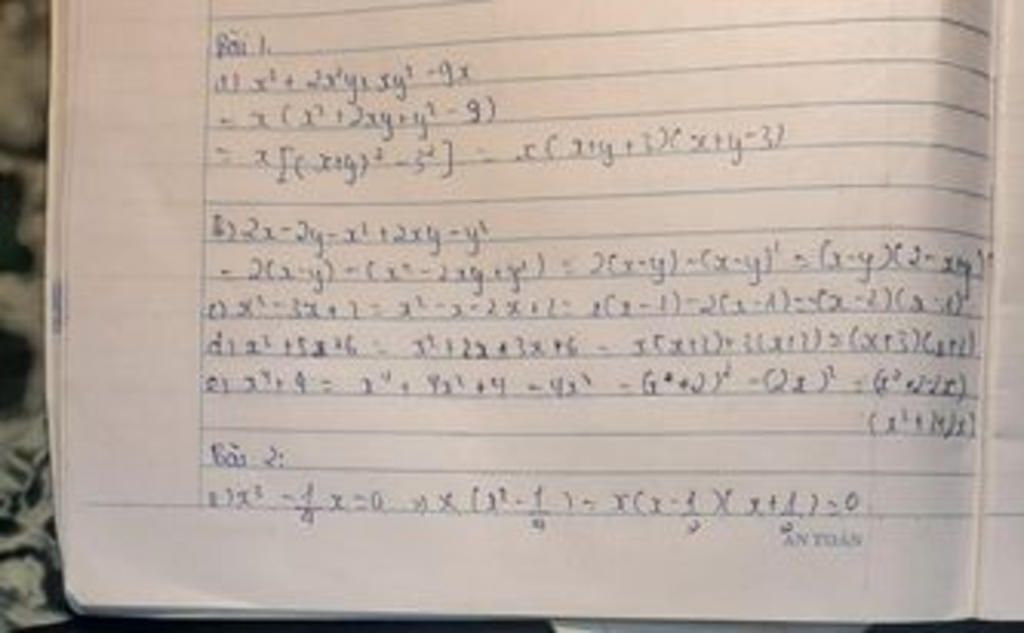 Bài 1.
a) x³ + 2x²y + xy² - 9x
= x (x² + 2xy + y² - 9)
= x [(x+y)² - 3²] = x(x+y+3)(x+y-3)
b) 2x - 2y - x² + 2xy - y²
= 2(x-y) - (x² - 2xy + y²) = 2(x-y) - (x-y)² = (x-y)(2-x+y)
c) x² - 3x + 2 = x² - x - 2x + 2 = x(x-1) - 2(x-1) = (x-2)(x-1)
d) x² + 5x + 6 = x² + 2x + 3x + 6 = x(x+2) + 3(x+2) = (x+3)(x+2)
e) x⁴ + 4 = x⁴ + 4x² + 4 - 4x² = (x²+2)² - (2x)² = (x²+2-2x)
(x²+2+2x)
Bài 2:
a) x³ - 1/4 x = 0 => x (x² - 1/4) = x(x - 1/2)(x + 1/2) = 0
AN TOÀN